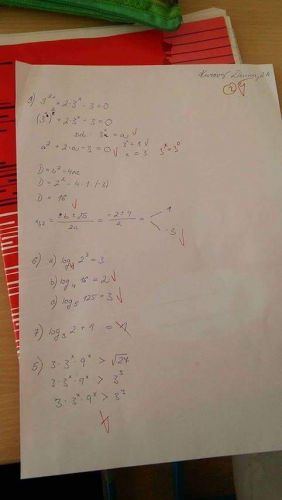 3²ˣ + 2·3ˣ - 3 = 0
(3ˣ)² + 2·3ˣ - 3 = 0
sub: 3ˣ = a
a² + 2·a - 3 = 0
3ˣ = 3⁰
D = b² - 4ac
D = 2² - 4·1·(-3)
D = 16
= -2 ± 4 / 2 =
1
-3
6) a) log 2³ = 3
b) log₄ 16 = 2
c) log₅ 125 = 3
7) log₃ 2 + 1 =
5) 3·3ˣ·9ˣ > √27
3·3ˣ·9ˣ > 3³
3·3ˣ·9ˣ > 3³